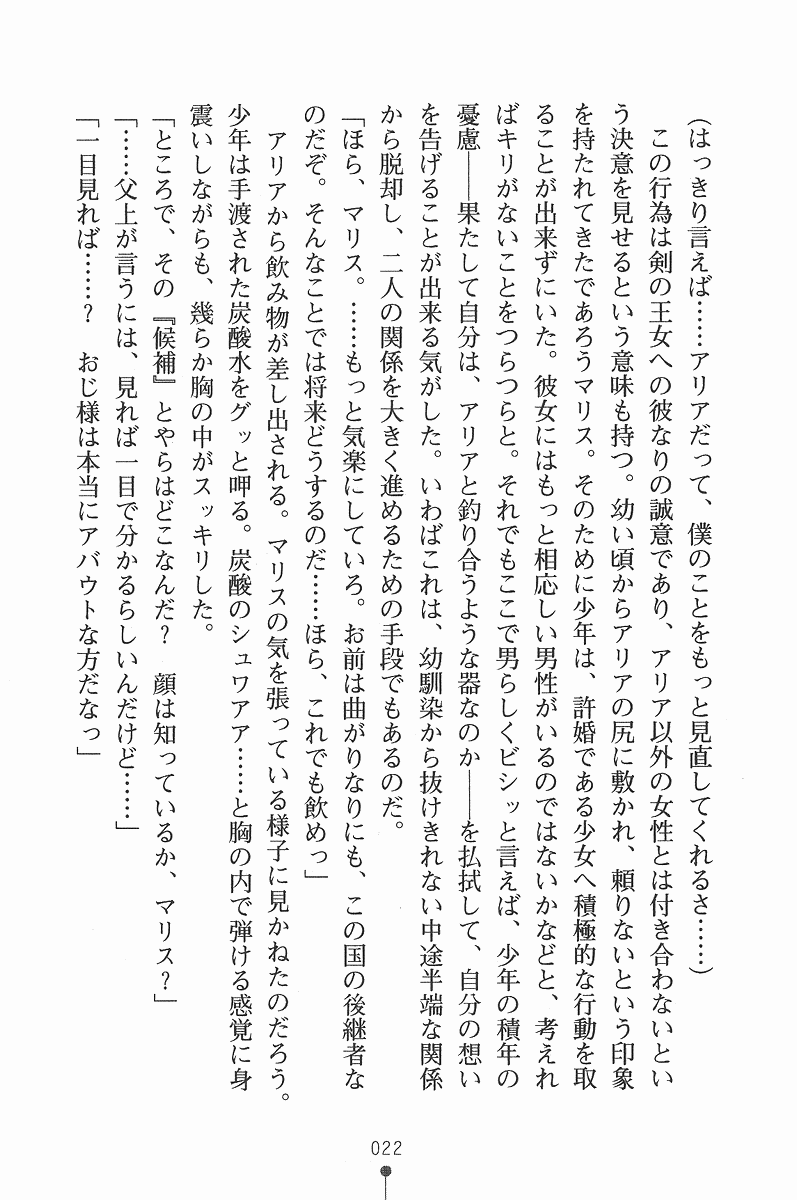 （はっきり言えば……アリアだって、僕のことをもっと見直してくれるさ……）
　この行為は剣の王女への彼なりの誠意であり、アリア以外の女性とは付き合わないとい
う決意を見せるという意味も持つ。幼い頃からアリアの尻に敷かれ、頼りないという印象
を持たれてきたであろうマリス。そのために少年は、許婚である少女へ積極的な行動を取
ることが出来ずにいた。彼女にはもっと相応しい男性がいるのではないかなどと、考えれ
ばキリがないことをつらつらと。それでもここで男らしくビシッと言えば、少年の積年の
憂慮――果たして自分は、アリアと釣り合うような器なのか――を払拭して、自分の想い
を告げることが出来る気がした。いわばこれは、幼馴染から抜けきれない中途半端な関係
から脱却し、二人の関係を大きく進めるための手段でもあるのだ。
「ほら、マリス。……もっと気楽にしていろ。お前は曲がりなりにも、この国の後継者な
のだぞ。そんなことでは将来どうするのだ……ほら、これでも飲めっ」
　アリアから飲み物が差し出される。マリスの気を張っている様子に見かねたのだろう。
少年は手渡された炭酸水をグッと呷る。炭酸のシュワアア……と胸の内で弾ける感覚に身
震いしながらも、幾らか胸の中がスッキリした。
「ところで、その『候補』とやらはどこなんだ？　顔は知っているか、マリス？」
「……父上が言うには、見れば一目で分かるらしいんだけど……」
「一目見れば……？　おじ様は本当にアバウトな方だなっ」
022